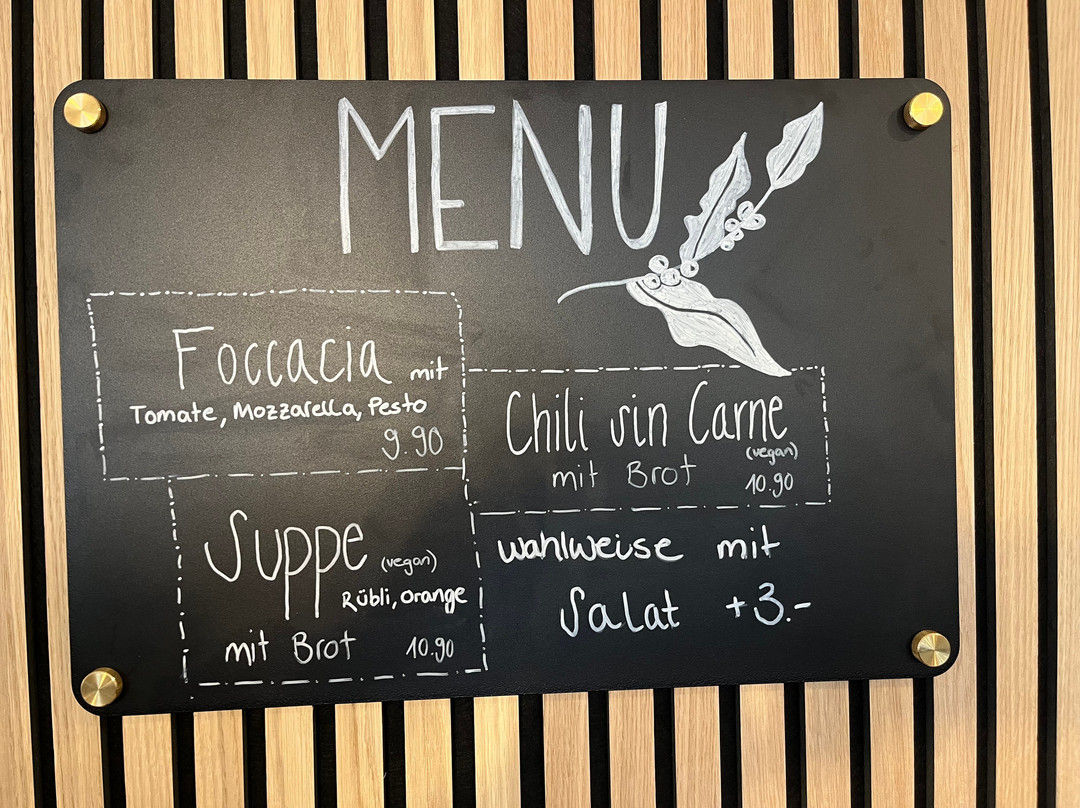 MENU
Foccacia mit
Tomate, Mozzarella, Pesto
9.90
Chili sin Carne
(vegan)
mit Brot 10.90
Suppe (vegan)
Rübli, Orange
mit Brot 10.90
wahlweise mit
Salat +3.-